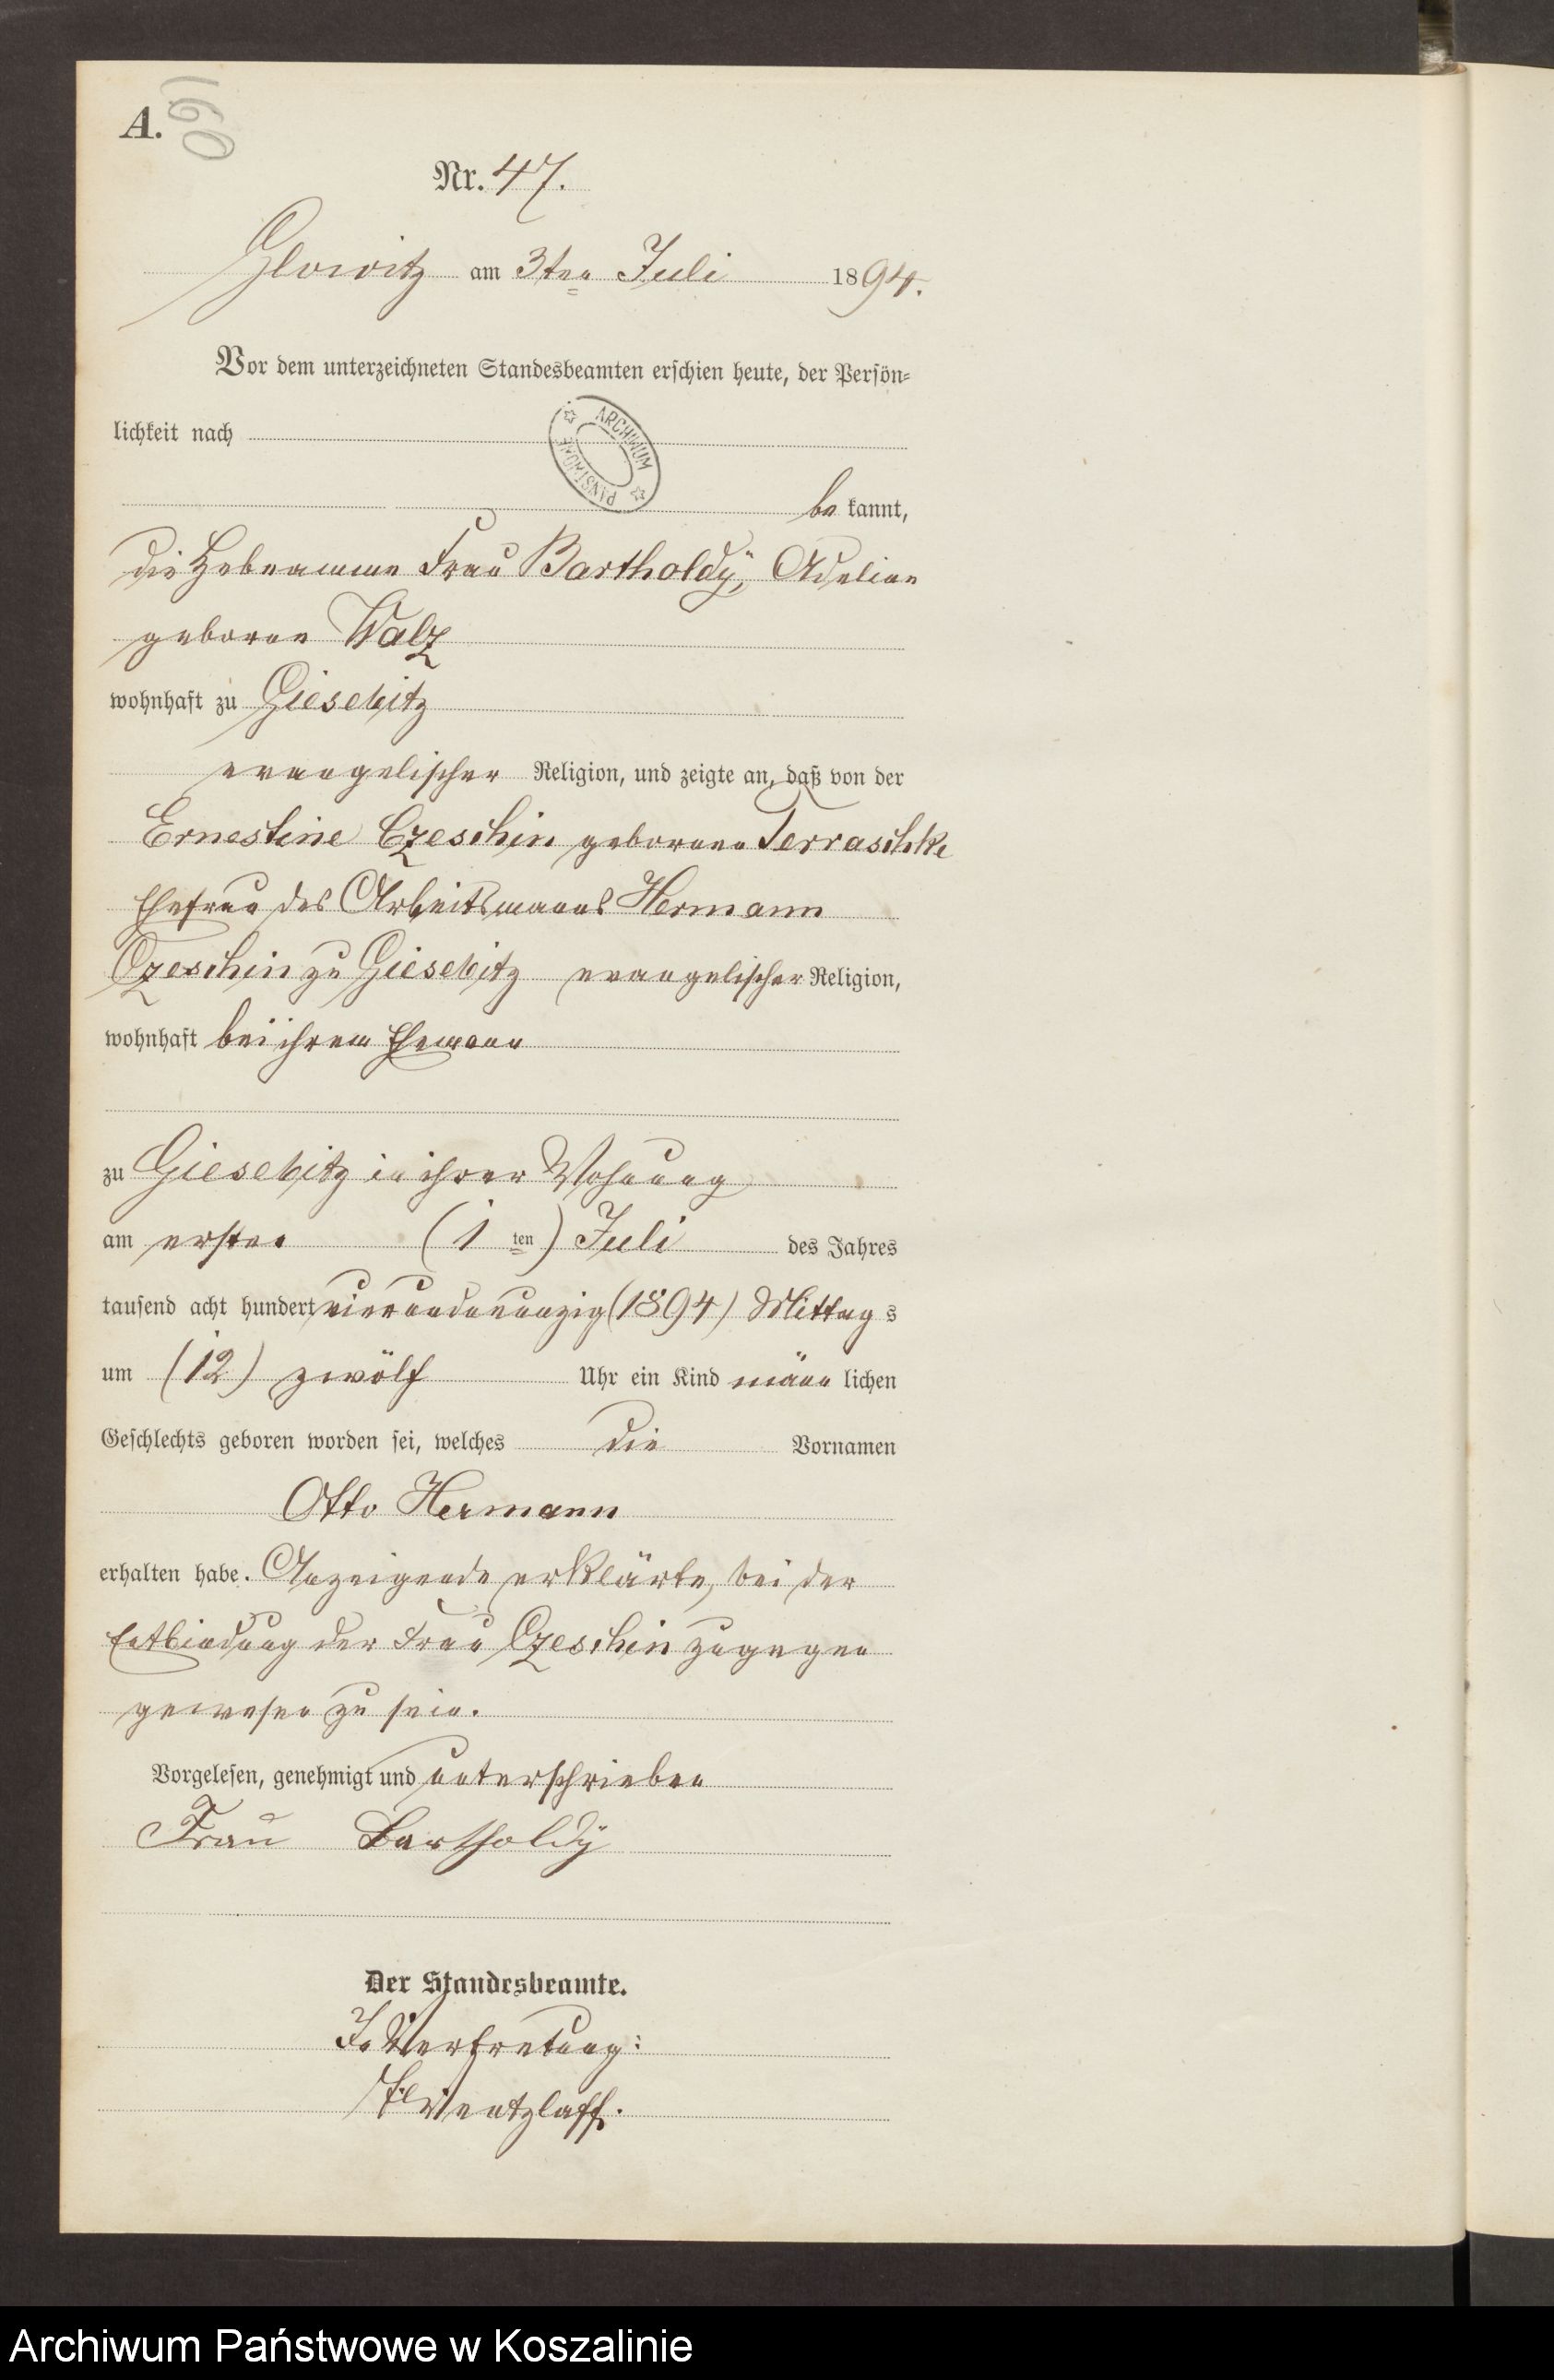 A.
160
Nr. 47.
Glowitz am 3ten Juli 1894.
Vor dem unterzeichneten Standesbeamten erschien heute, der Persön=
lichkeit nach
ARCHIWUM PAŃSTWOWE
be kannt,
die Hebeamme Frau Bartholdÿ, Adeline
geborne Walz
wohnhaft zu Giesebitz
evangelischer Religion, und zeigte an, daß von der
Ernestine Czeschin geborene Terraschke
Ehefrau des Arbeitsmanns Hermann
Czeschin zu Giesebitz evangelischer Religion,
wohnhaft bei ihrem Ehemann
zu Giesebitz in ihrer Wohnung
am ersten (1 ten) Juli des Jahres
tausend acht hundert vierundneunzig (1894) Mittag s
um (12) zwölf Uhr ein Kind männ lichen
Geschlechts geboren worden sei, welches die Vornamen
Otto Hermann
erhalten habe. Anzeigende erklärte, bei der
Entbindung der Frau Czeschin zugegen
gewesen zu sein.
Vorgelesen, genehmigt und unterschrieben
Frau Bartholdÿ
Der Standesbeamte.
In Vertretung:
Wentzlaff.
Archiwum Państwowe w Koszalinie